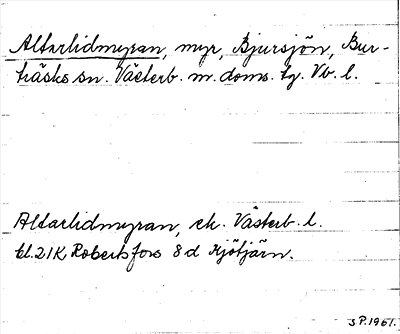 Altarlidmyran, myr, Bjursjön, Bur-
träsks sn. Västerb. m. doms. tg. Vb. l.
Altarlidmyran, ek. Västerb. l.
bl. 21K, Robertsfors 8 d Hjötjärn.
JP. 1961.